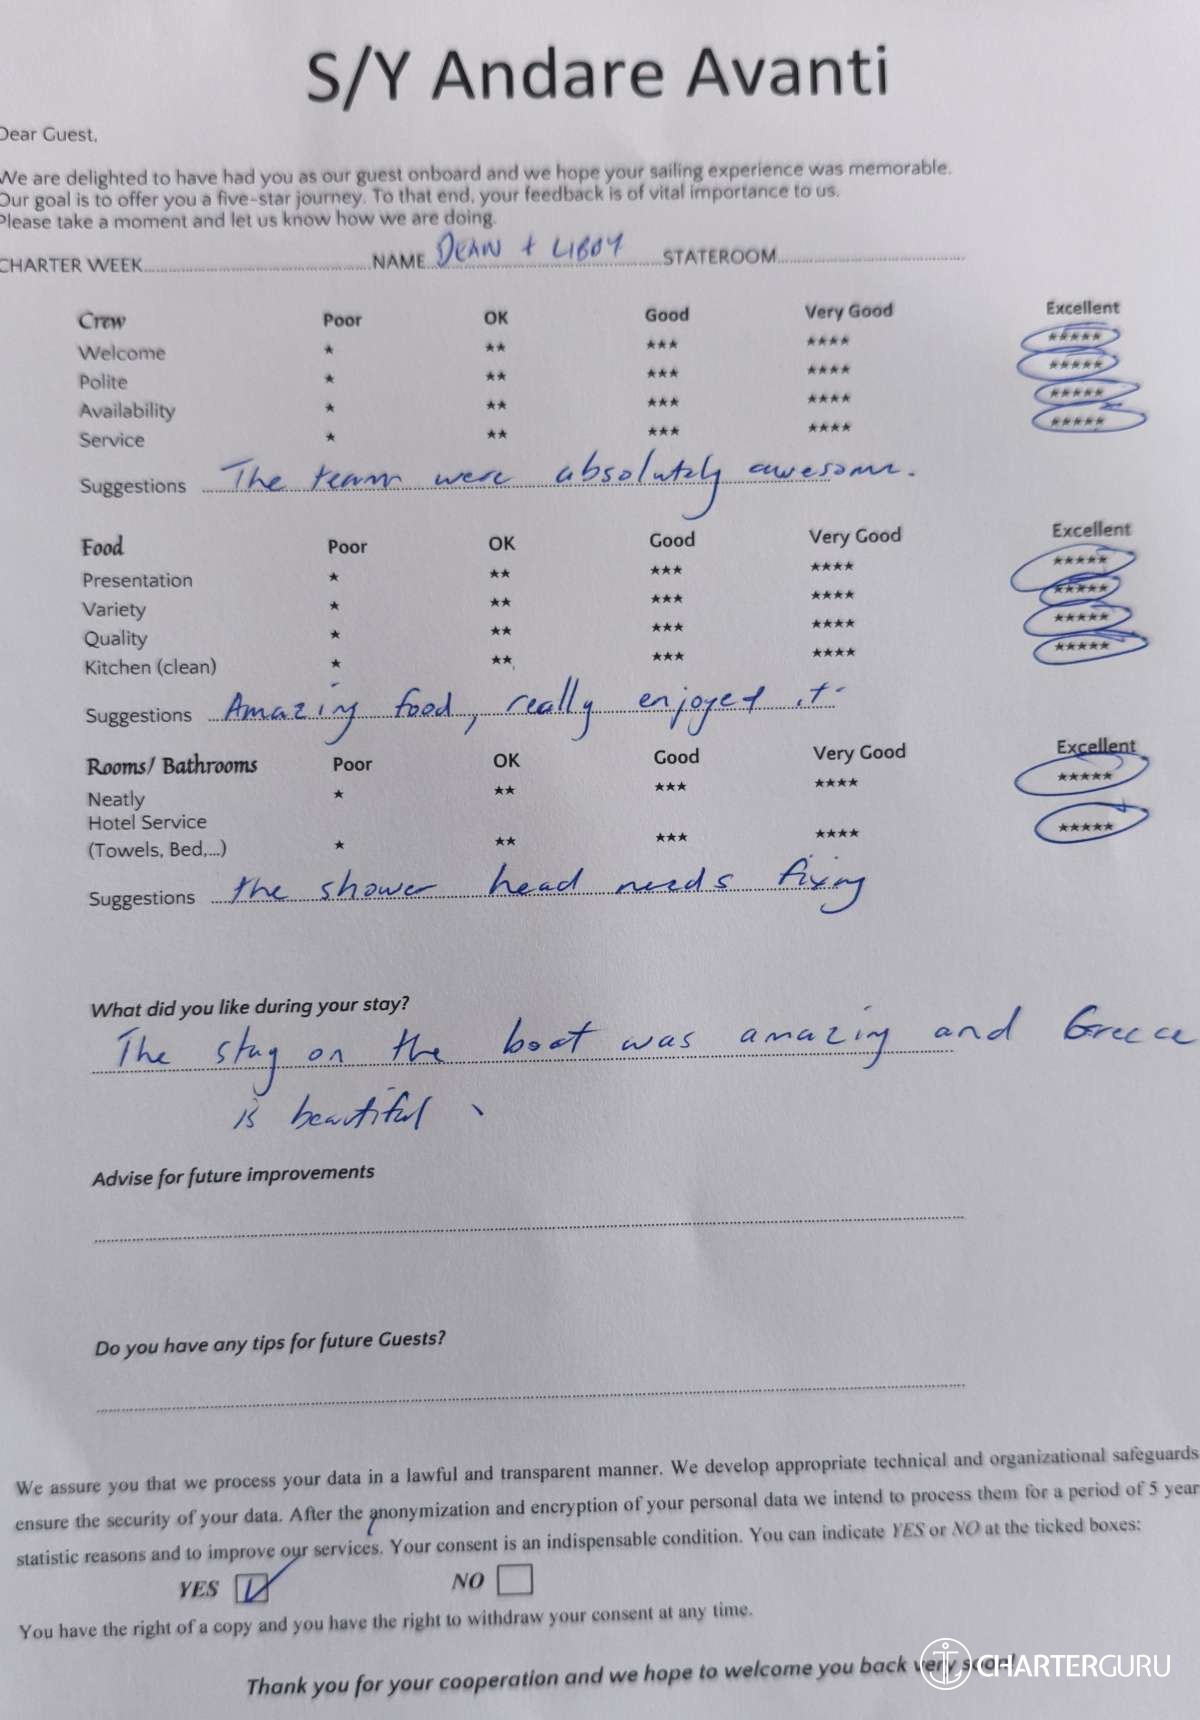 S/Y Andare Avanti
Dear Guest,
We are delighted to have had you as our guest onboard and we hope your sailing experience was memorable.
Our goal is to offer you a five-star journey. To that end, your feedback is of vital importance to us.
Please take a moment and let us know how we are doing.
CHARTER WEEK NAME DEAN + LIBBY STATEROOM
Crew Poor OK Good Very Good Excellent
Welcome ★ ★★ ★★★ ★★★★ ★★★★★
Polite ★ ★★ ★★★ ★★★★ ★★★★★
Availability ★ ★★ ★★★ ★★★★ ★★★★★
Service ★ ★★ ★★★ ★★★★ ★★★★★
Suggestions The team were absolutely awesome.
Food Poor OK Good Very Good Excellent
Presentation ★ ★★ ★★★ ★★★★ ★★★★★
Variety ★ ★★ ★★★ ★★★★ ★★★★★
Quality ★ ★★ ★★★ ★★★★ ★★★★★
Kitchen (clean) ★ ★★ ★★★ ★★★★ ★★★★★
Suggestions Amazing food, really enjoyed it
Rooms/ Bathrooms Poor OK Good Very Good Excellent
Neatly ★ ★★ ★★★ ★★★★ ★★★★★
Hotel Service
(Towels, Bed,...) ★ ★★ ★★★ ★★★★ ★★★★★
Suggestions the shower head needs fixing
What did you like during your stay?
The stay on the boat was amazing and Greece
is beautiful.
Advise for future improvements
Do you have any tips for future Guests?
We assure you that we process your data in a lawful and transparent manner. We develop appropriate technical and organizational safeguards
ensure the security of your data. After the anonymization and encryption of your personal data we intend to process them for a period of 5 year
statistic reasons and to improve our services. Your consent is an indispensable condition. You can indicate YES or NO at the ticked boxes:
YES NO
You have the right of a copy and you have the right to withdraw your consent at any time.
Thank you for your cooperation and we hope to welcome you back very soon!
CHARTERGURU